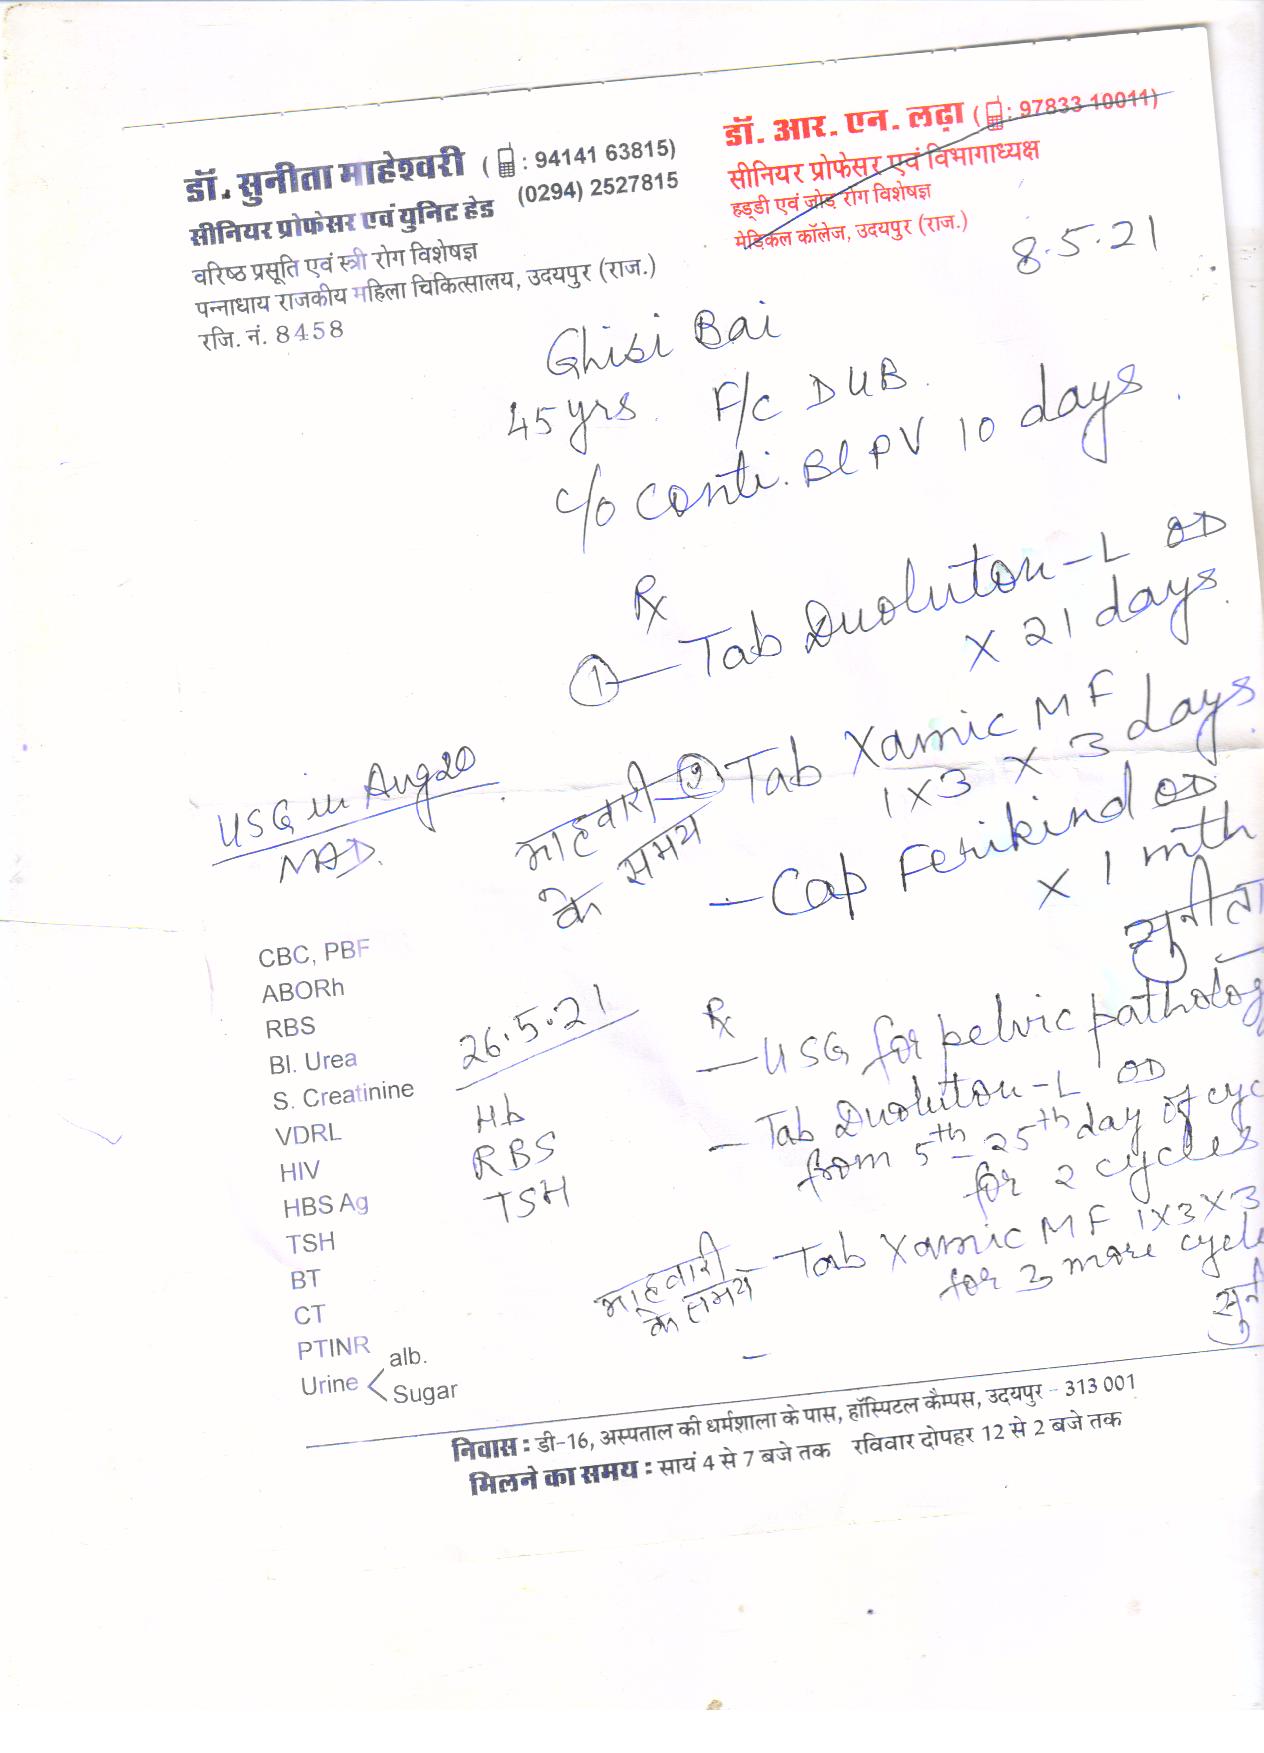 डॉ. सुनीता माहेश्वरी ( : 94141 63815)
(0294) 2527815
सीनियर प्रोफेसर एवं युनिट हेड
वरिष्ठ प्रसूति एवं स्त्री रोग विशेषज्ञ
पन्नाधाय राजकीय महिला चिकित्सालय, उदयपुर (राज.)
रजि. नं. 8458
डॉ. आर. एन. लढ़ा ( : 97833 10011)
सीनियर प्रोफेसर एवं विभागाध्यक्ष
हड्डी एवं जोड़ रोग विशेषज्ञ
मेडिकल कॉलेज, उदयपुर (राज.)
8.5.21
Ghisi Bai
45 yrs. F/c DUB.
c/o conti. Bl PV 10 days
Rx
1 — Tab Duoluton-L OD
x 21 days.
माहवारी के समय
2 Tab Xamic MF
1x3 x 3 days
- Cap Ferikind OD
x 1 mth
सुनीता
USG in Aug 20
NAD.
CBC, PBF
ABORh
RBS
Bl. Urea
S. Creatinine
VDRL
HIV
HBS Ag
TSH
BT
CT
PTINR
Urine < alb.
Sugar
26.5.21
Hb
RBS
TSH
Rx
- USG for pelvic patholog
- Tab Duoluton-L OD
from 5th - 25th day of cyc
for 2 cycles
माहवारी के समय
- Tab Xamic MF 1x3x3
for 3 more cycle
सुनी
निवास : डी-16, अस्पताल की धर्मशाला के पास, हॉस्पिटल कैम्पस, उदयपुर - 313 001
मिलने का समय : सायं 4 से 7 बजे तक रविवार दोपहर 12 से 2 बजे तक